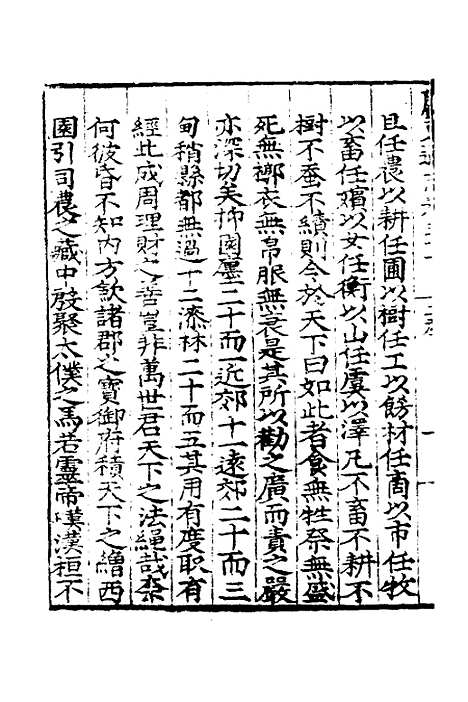 且任農以耕任圃以樹任工以飭材任商以市任牧
以畜任嬪以女任衡以山任虞以澤凡不畜不耕不
樹不蚕不績則令於天下曰如此者食無牲祭無盛
死無槨衣無帛服無衰是其所以勸之廣而責之嚴
亦深切矣抑園廛二十而一近郊十一遠郊二十而三
甸稍縣都無過十二漆林二十而五其用有度取有
經此成周理財之善豈非萬世君天下之法繩哉柰
何彼昏不知内方歛諸郡之寶御府積天下之繒西
園引司農之藏中廄聚太僕之馬若靈帝嘆漢桓不